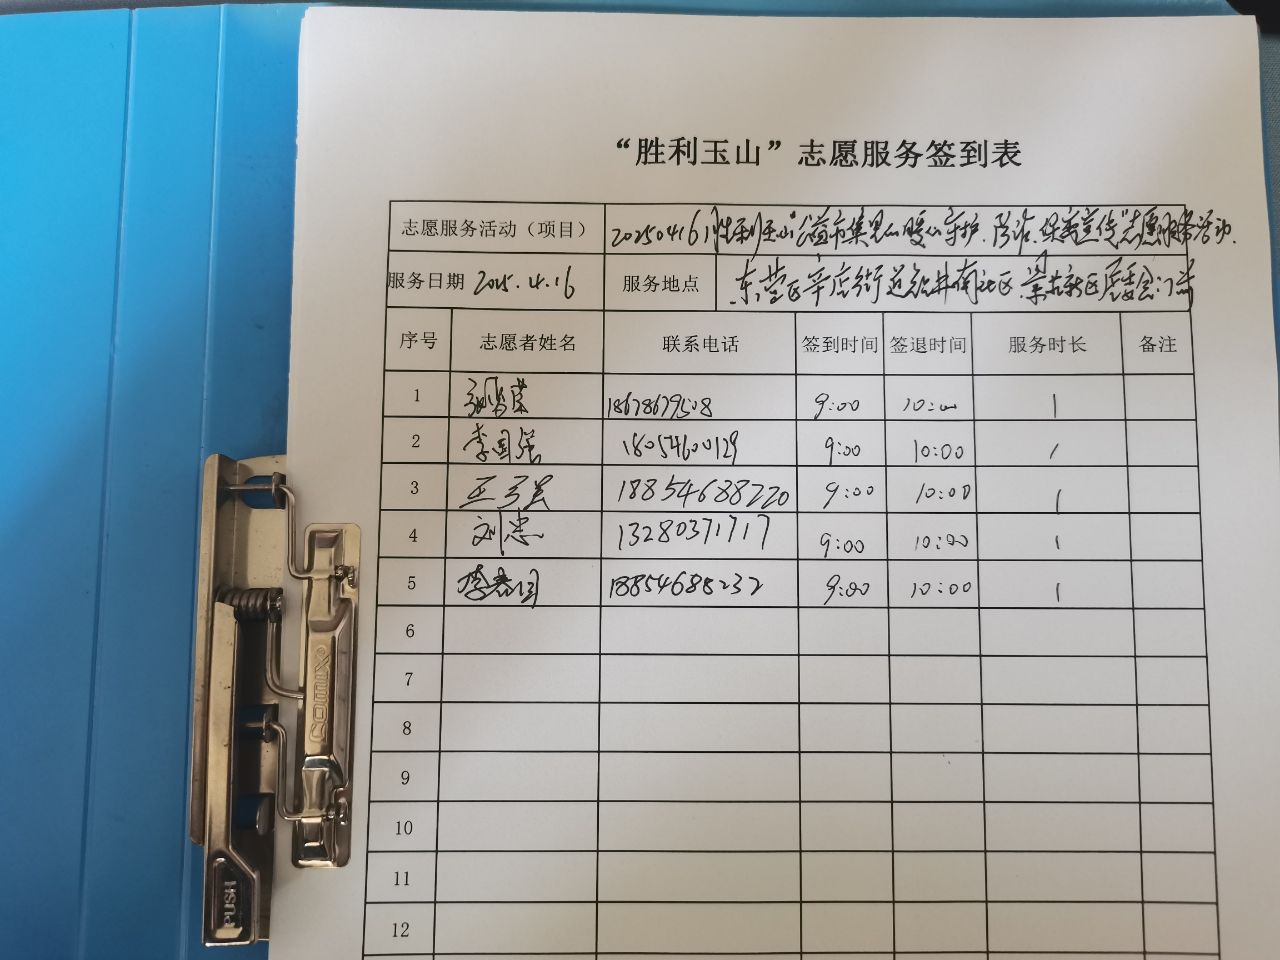 “胜利玉山”志愿服务签到表
志愿服务活动（项目） 20250416“胜利玉山”公益市集 暖心守护 志愿服务活动.
服务日期 2025.4.16 服务地点 东营区辛店街道 南社区 新区居委会门前
序号 志愿者姓名 联系电话 签到时间 签退时间 服务时长 备注
1 18678679508 9:00 10:00 1
2 李国强 18054600129 9:00 10:00 1
3 18854688220 9:00 10:00 1
4 刘忠 13280371717 9:00 10:00 1
5 李春 18854688232 9:00 10:00 1
6
7
8
9
10
11
12
COMIX
PUSH